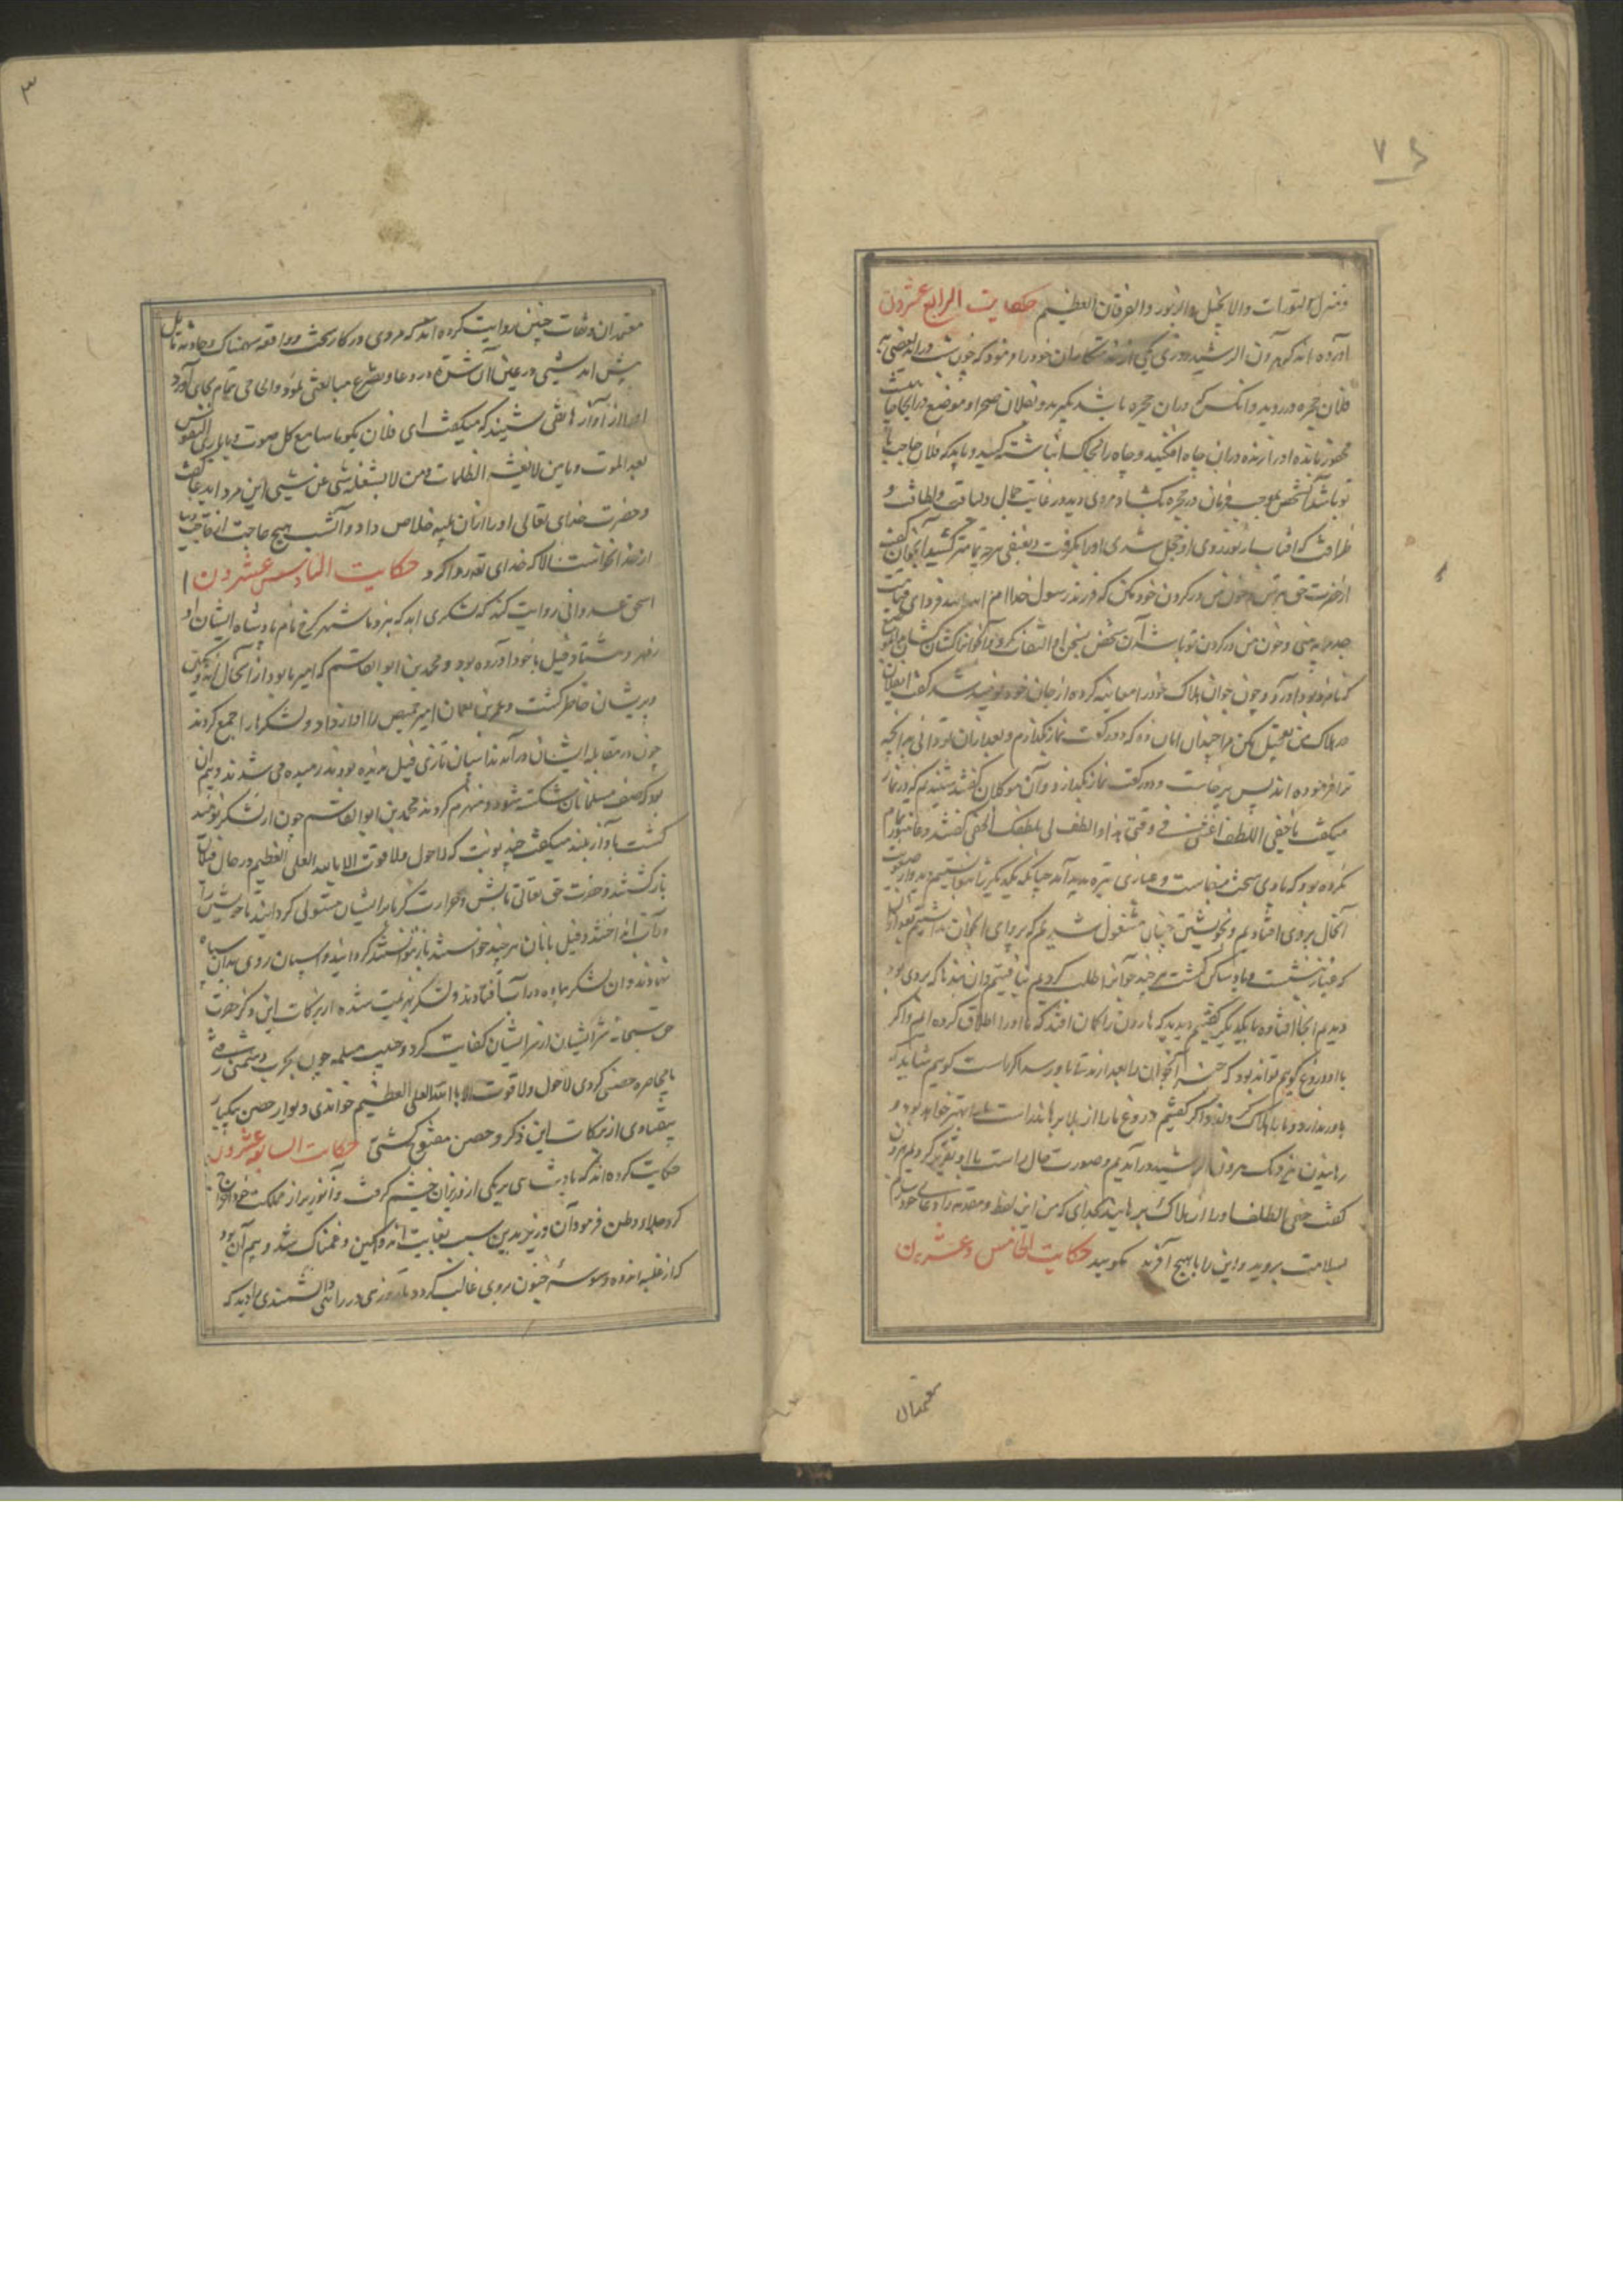 ۷۶
و منزل التورات والانجیل والزبور والفرقان العظیم حکایت الرابع عشرون
آورده اند که هرون الرشید روزی یکی از خدمتکاران خود را فرمود که چون شب دراید
فلان حجره در روید و انکس که دران حجره باشد بگیرید و بفلان صحرا و موضع در انجا چاهیست
محفور مانده او را زنده دران چاه افکنید و چاه را بخاک انباشته کنید و باید که فلان حاجب با
تو باشد آن شخص بموجب فرمان در حجره بکشاد مردی دید در غایت جمال و لباقت و لطافت و
ظرافت که افتاب از نور روی او خجل شدی او را بگرفت و بعنفی هرچه تمامتر کشید آنجوان گفت
از حضرت حق بترس و خون من در گردن خود مکن که فرزند رسول خدا ام فردای قیامت
جد مرا بینی و خون من در گردن تو باشد آن شخص بسخن او التفات نکرد و آنجوانرا کشان کشان
که نامزد بود آورد و چون جوان هلاک خود را معاینه کرد و از جان خود نومید شد گفت ای فلان
در هلاک من تعجیل مکن مرا چندان امان ده که دو رکعت نماز بگذارم و بعد ازان تو دانی هر انچه
ترا فرموده اند پس برخاست و دو رکعت نماز بگذارد و آن موکلان گفتند شنیدیم که در نماز
میگفت یا خفی اللطف اغثنی فی وقتی هذا والطف لی بلطفک الخفی گفتند دعا هنوز تمام
نکرده بود که بادی سخت برخاست و غباری تیره پدید آمد چنانکه یکدیگر را نتوانستیم دید و از صعوبت
آنحال بروی افتادیم و بخویشتن چنان مشغول شدیم که پروای آنجوان نداشتیم بعد ازان
که غبار بنشست و باد ساکن گشت هر چند جوانرا طلب کردیم نیافتیم و ان بندها که بر وی بود
دیدیم انجا افتاده با یکدیگر گفتیم دیدید که هارون را گمان افتد که ما او را اطلاق کرده ایم و اگر
با او دروغ گوییم تواند بود که خبر آنجوان را بعد ازین بدو رسد اگر راست گوییم شاید که
باور ندارد و ما را هلاک گرداند و اگر گفتیم دروغ ما را از بلا برهاند راست ما را بهتر خواهد بود و
رهانیدن نیز نزدیک هرون الرشید در آمدیم و صورت حال براستی با او تقریر کردیم هرون
گفت خفی اللطف او را از هلاک برهانید بخدای که من این لفظ و مقدمه را دعای خود سازم
بسلامت بروید و این را با هیچ آفریده مگویید حکایت الخامس وعشرین
معتمدان
۳
معتمدان و ثقات چنین روایت کرده اند که مردی در کار سخت و واقعه سهمناک و حادثه هایل
پیش امد شبی در عین آن شدت در دعا و تضرع مبالغتی نمود و الحاحی تمام بجای آورد
آواز هاتفی شنید که میگفت ای فلان بگو یا سامع کل صوت و یا باری النفوس
بعد الموت و یا من لا تغشه الظلمات و من لا یشغله شی عن شی این مرد این دعا گفت
و حضرت خدای تعالی او را ازان بلیه خلاص داد و آنشب هیچ حاجت
از خدا نخواست الا که خدای تع روا کرد حکایت السادس عشرون
اسحق عدوانی روایت کند که لشکری امد که بنزد ما شهر کرخ نام پادشاه ایشان
و هشتاد فیل با خود آورده بود و محمد بن ابو القاسم که امیر ما بود از آنحال
و پریشان خاطر گشت و عمر بن نعمان امیر حمص را آواز داد و لشکرها را جمع کردند
چون در مقابله ایشان درآمدند اسپان تازی فیل ندیده بودند رمیده می شدند و بیم ان
بود که صف مسلمانان شکسته شود و منهزم گردند محمد بن ابو القاسم چون از لشکر نومید
گشت باواز بلند میگفت چند نوبت که لاحول ولا قوت الا بالله العلی العظیم در حال فیلان
بازگشتند و حضرت حق تعالی تابش و حرارت گرما بر ایشان مستولی گردانید تا خویشتن را
در آب انداختند و فیل بانان هر چند خواستند بازنتوانستند گردانید و اسپان روی بدان سپاه
نهادند و ان لشکر پیاده در آب افتادند و لشکر هزیمت شده از برکات این ذکر حضرت
حق سبحانه شر ایشان از سر ایشان کفایت کرد و حبیب مسلمه چون بحرب دشمنی رفتی
یا محاصره حصنی کردی لاحول ولا قوت الا بالله العلی العظیم خواندی و دیوار حصن بیکبار
بیفتادی از برکات این ذکر و حصن مفتوح گشتی حکایت السابع عشرون
حکایت کرده اند که پادشاهی بر یکی از وزیران خشم گرفت و آنوزیر از مملکت خود اخراج
کرد و جلاء وطن فرمود آن وزیر بدین سبب بغایت اندوهگین و غمناک شد و بیم آن بود
که از غلبه اندوه وسوسه جنون بر وی غالب گردد تا روزی در راهی دانشمندی را دید که